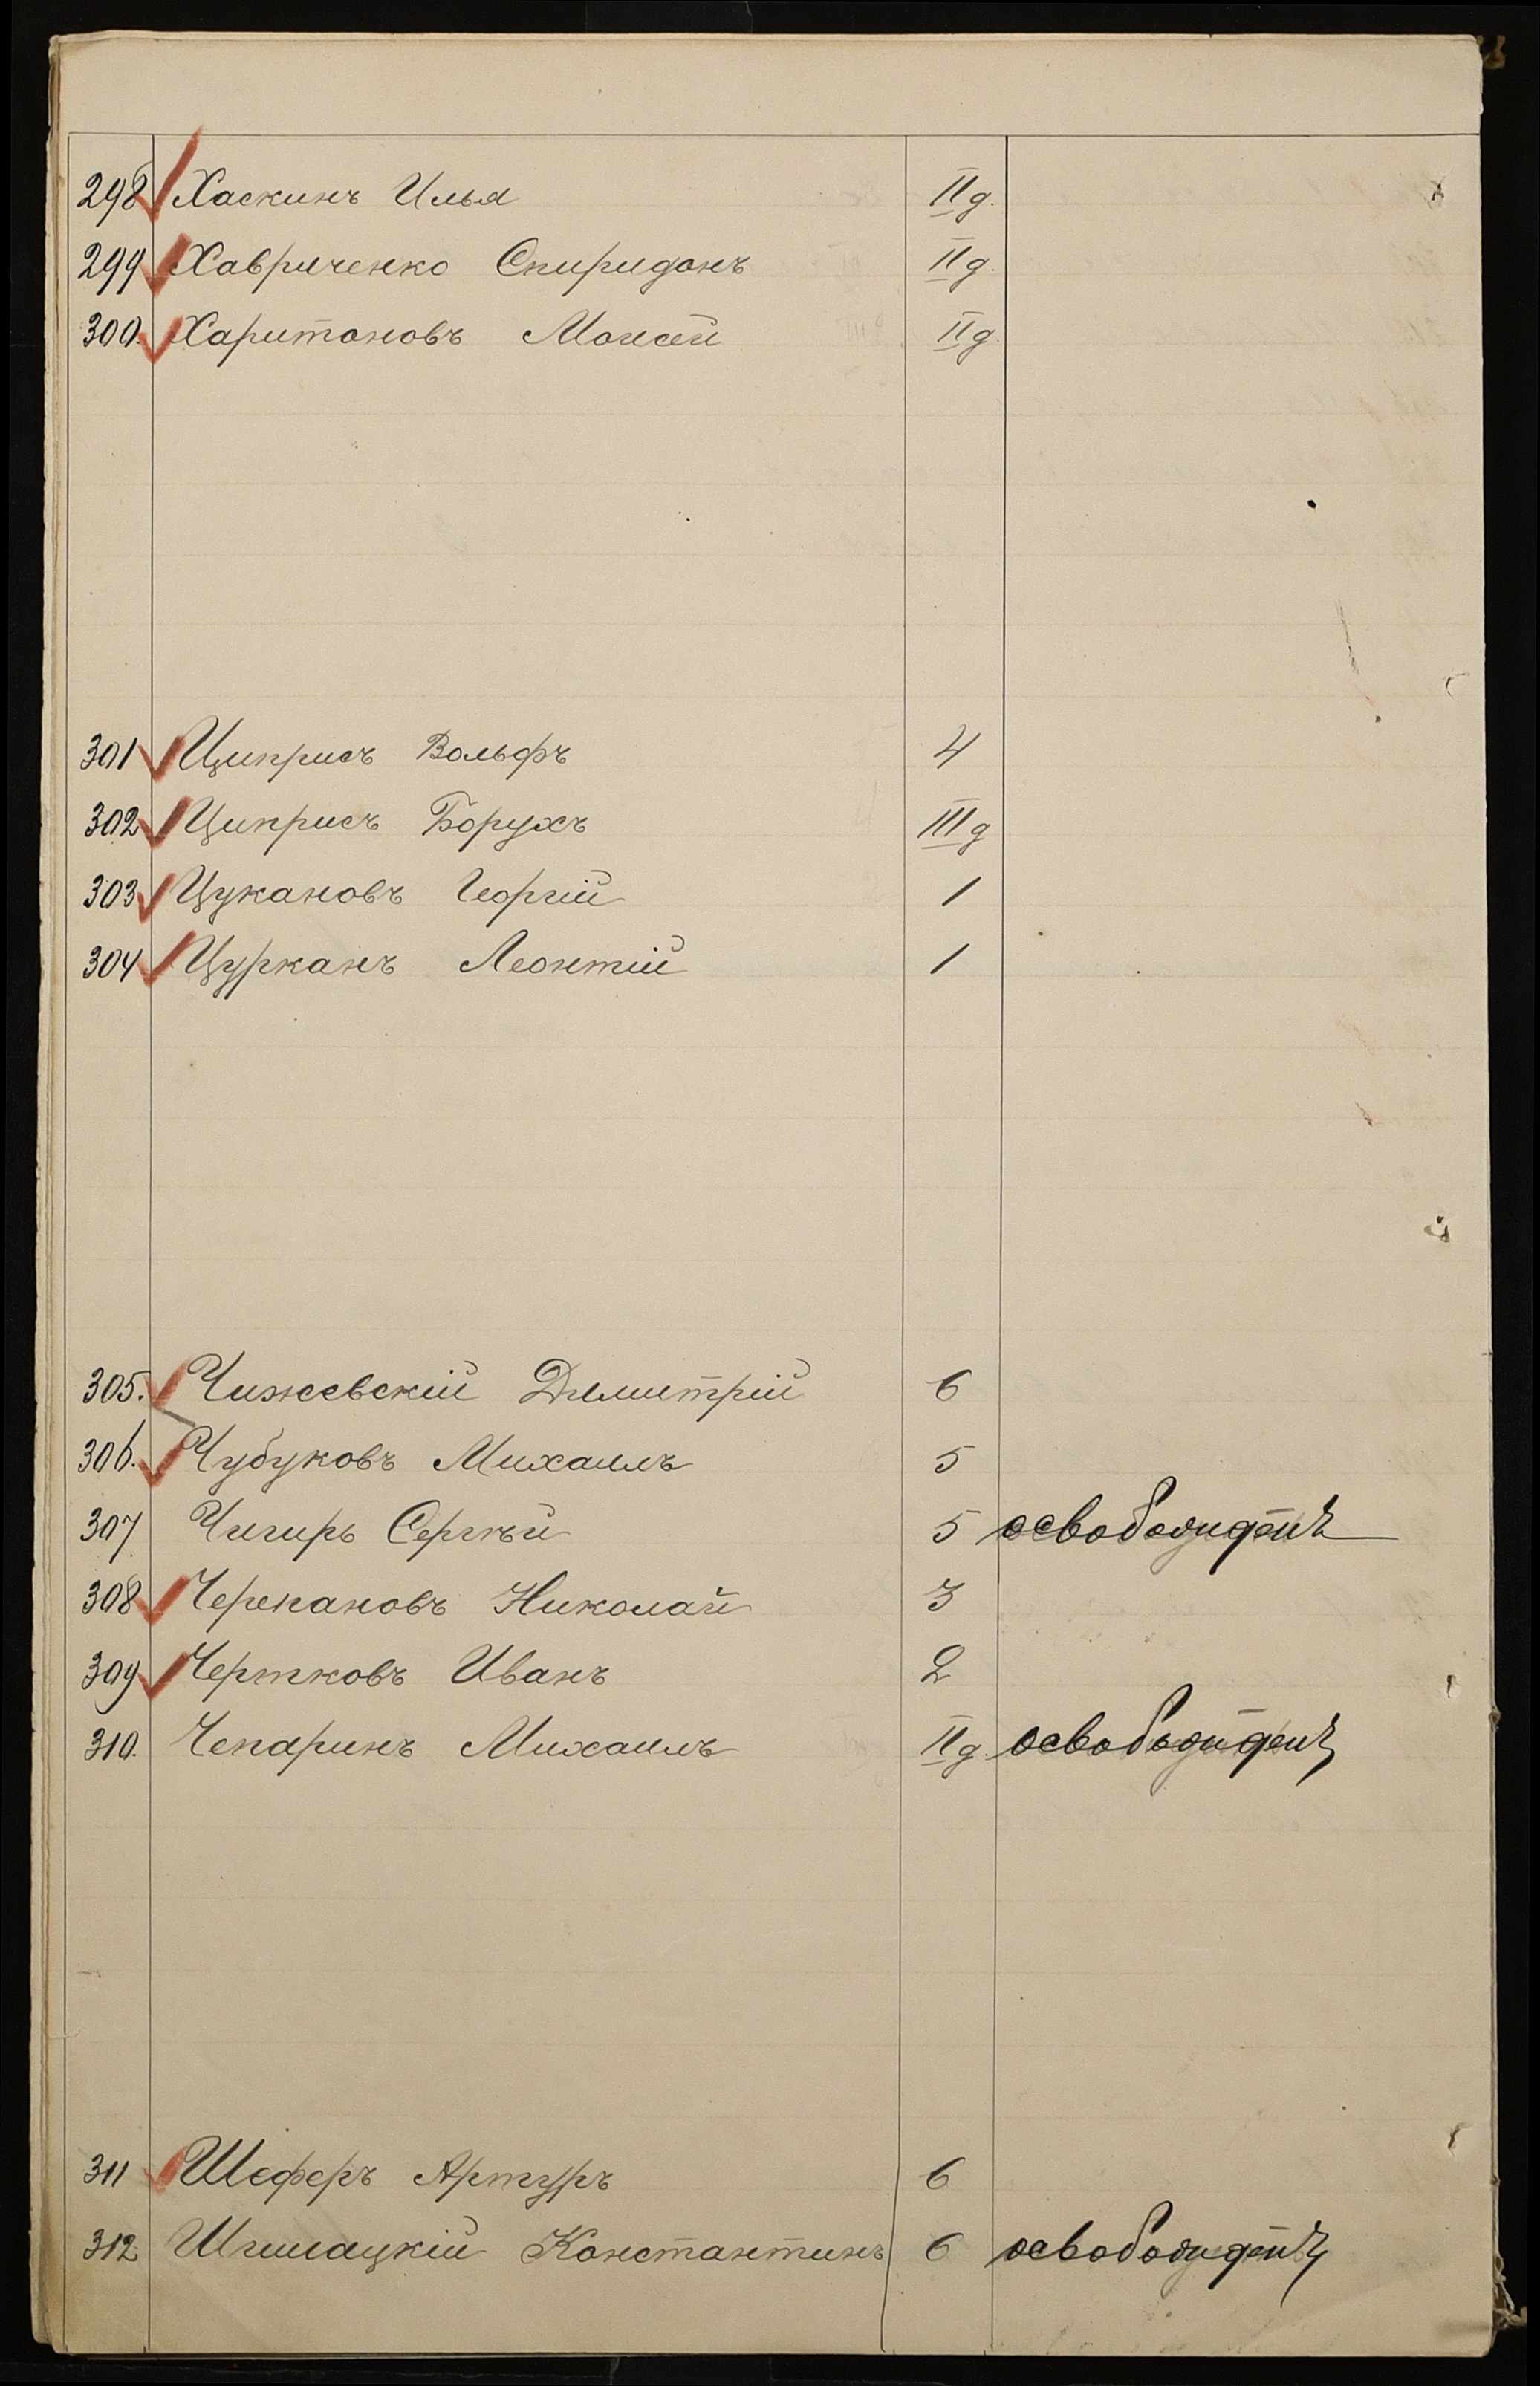 298 Хаскинъ Илья IIд.
299 Хавриченко Спиридонъ IIд.
300. Харитоновъ Моисей IIд.
301 Циприсъ Вольфъ 4
302 Циприсъ Борухъ IIIд
303 Цукановъ Георгій 1
304 Цурканъ Леонтій 1
305. Чижевскій Димитрій 6
306. Чубуковъ Михаилъ 5
307 Чигирь Сергѣй 5 освобожденъ
308 Черепановъ Николай 3
309 Чертковъ Иванъ 2
310. Чепаринъ Михаилъ IIд освобожденъ
311 Шеферъ Артуръ 6
312 Константинъ 6 освобожденъ